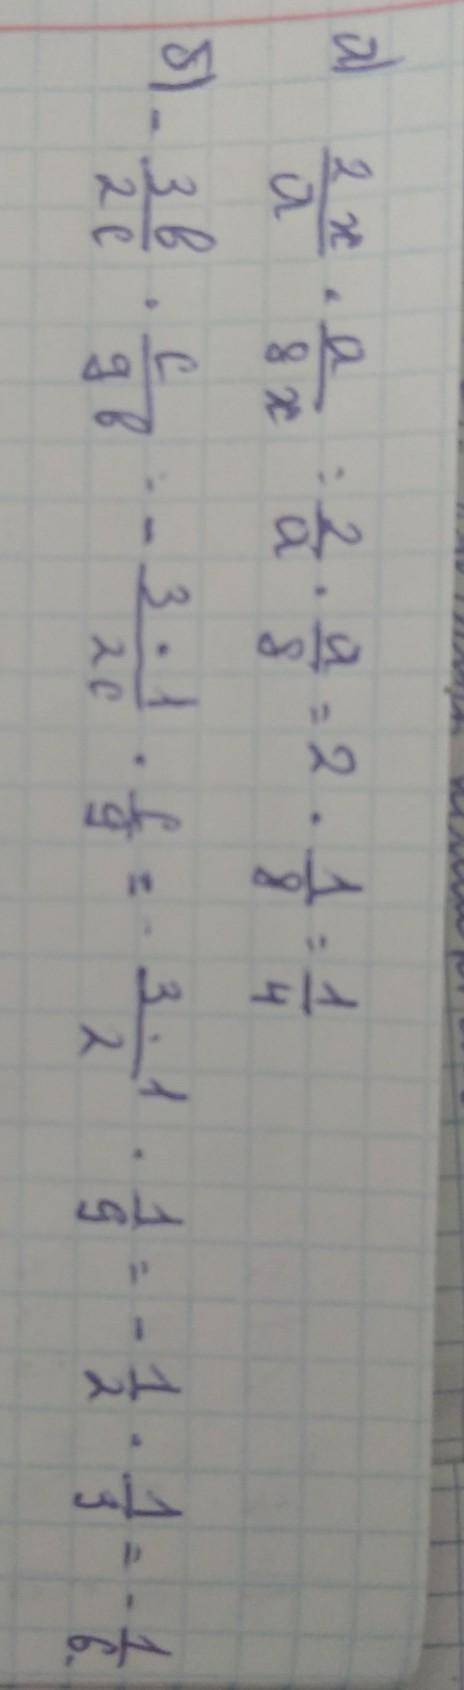 а) 2x/a · a/8x = 2/a · a/8 = 2 · 1/8 = 1/4
б) - 3b/2c · c/9b = - 3·1/2c · c/9 = - 3·1/2 · 1/9 = - 1/2 · 1/3 = - 1/6.